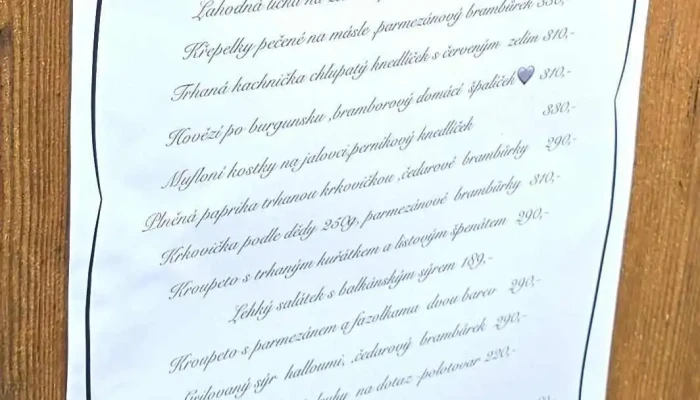 Lahodná
Křepelky pečené na másle ,parmezánový brambůrek 330,-
Trhaná kachnička chlupatý knedlíček s červeným zelím 310,-
Hovězí po burgunsku ,bramborový domácí špalíček💜 310,-
Mufloní kostky na jalovci,perníkový knedlíček 330,-
Plněná paprika trhanou krkovičkou ,čedarové brambůrky 290,-
Krkovička podle dědy 250g, parmezánové brambůrky 310,-
Kroupeto s trhaným kuřátkem a listovým špenátem 290,-
Lehký salátek s balkánským sýrem 189,-
Kroupeto s parmezánem a fazolkama dvou barev 290,-
Grilovaný sýr halloumi, .čedarový brambůrek 290,-
na dotaz -polotovar 220,-